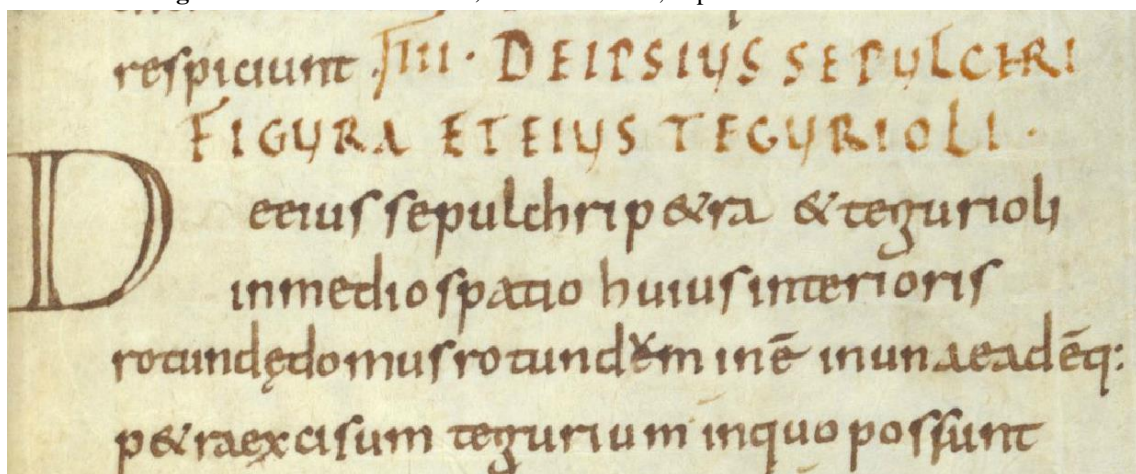 respiciunt .IIII. DE IPSIUS SEPULCHRI
FIGURA ET EIUS TEGURIOLI.
De eius sepulchri p&ra & tegurioli
in medio spatio huius interioris
rotundę domus rotundum inē in una eadēq:
p&ra excisum tegurium in quo possunt